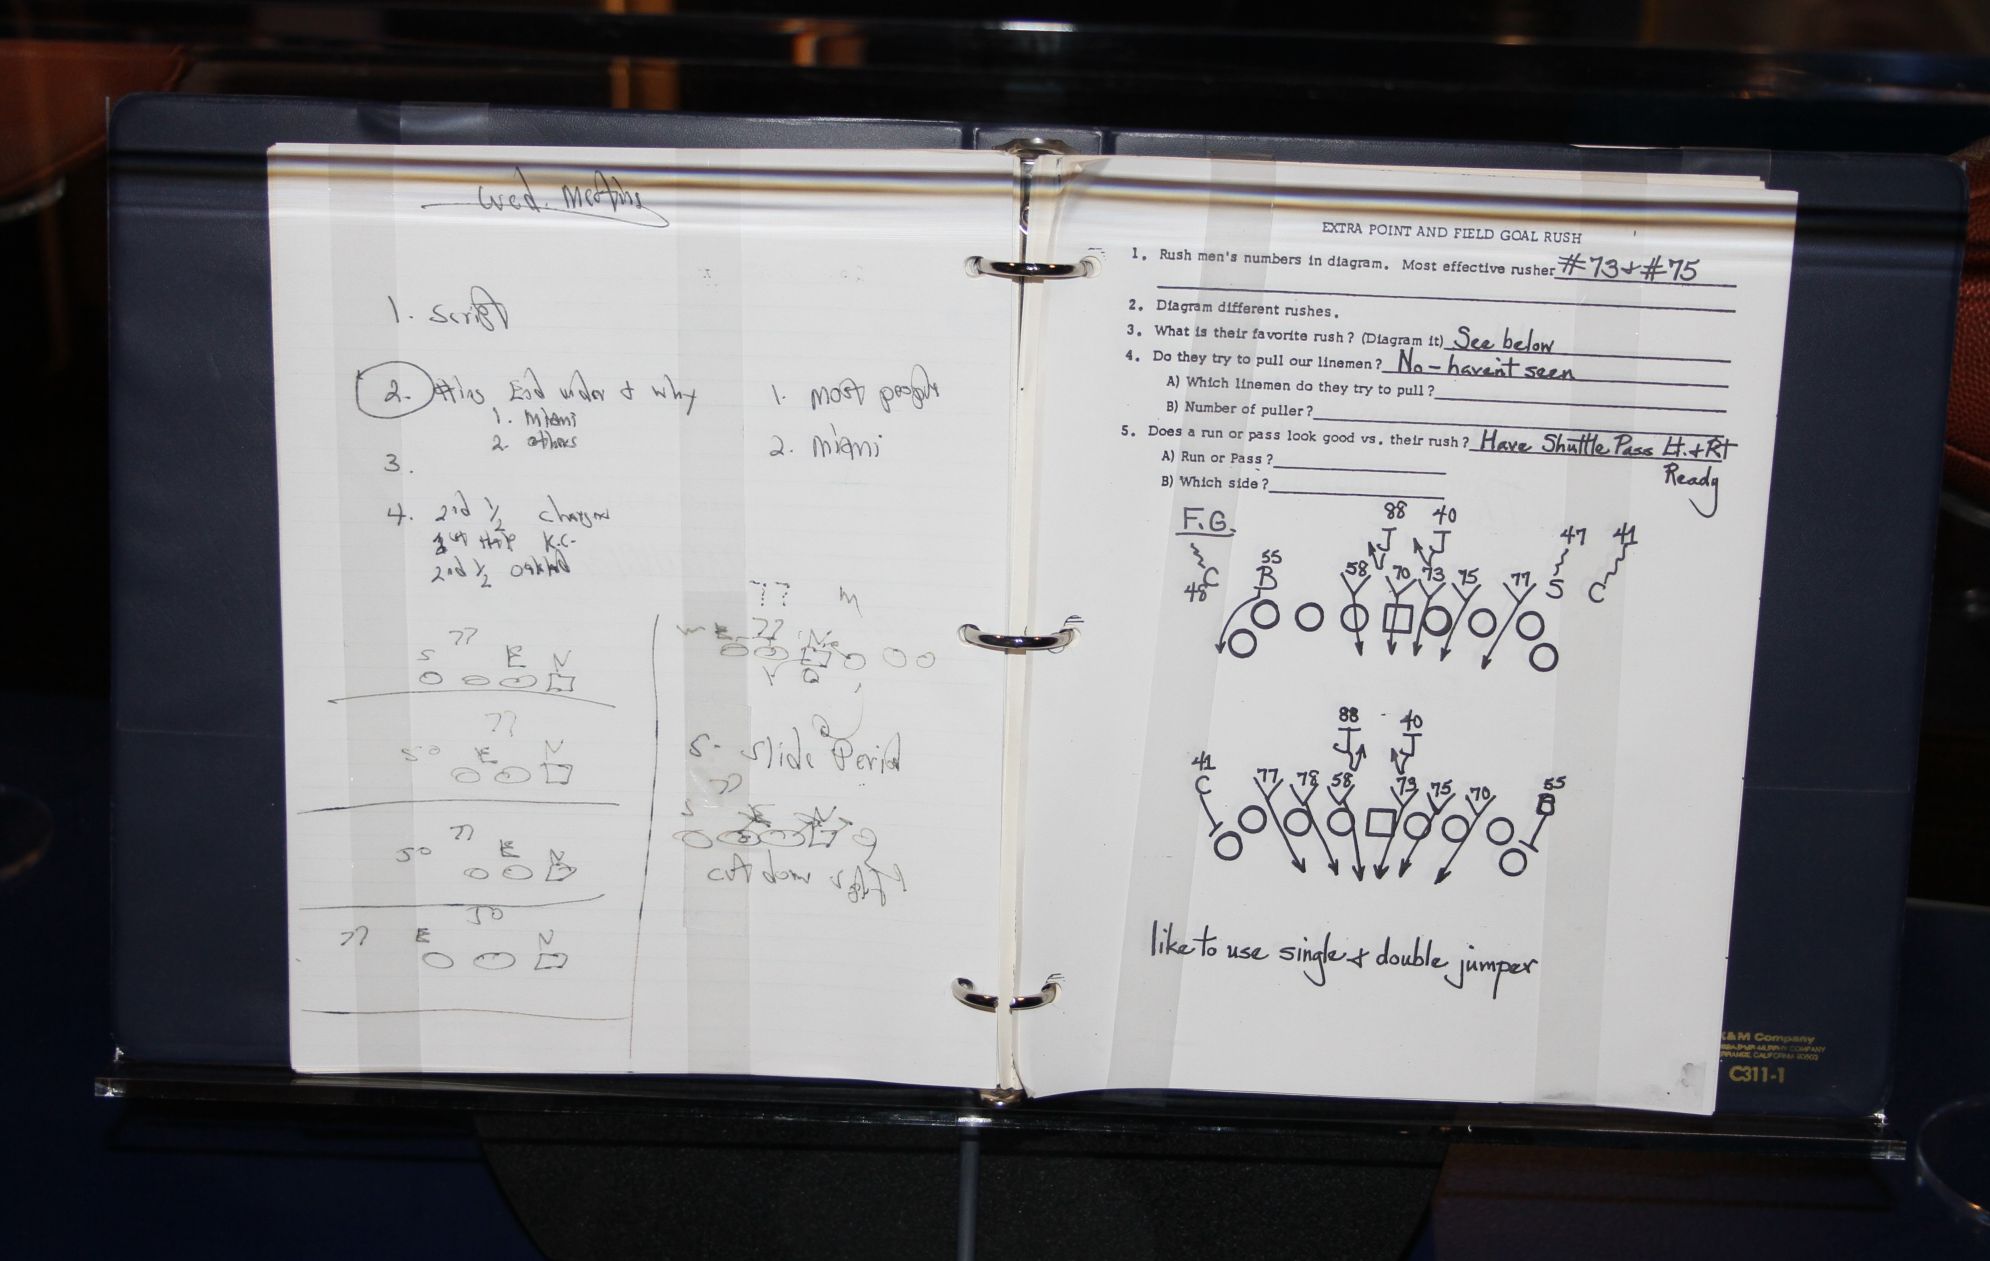 Wed. Meeting
1. Script
2.
End under & why
1. Miami
2. others
3.
4. 2nd 1/2
K.C.
2nd 1/2 Oakland
1. most people
2. Miami
77
S E N
77
50 E N
77
50 E N
50
77 E N
77 M
77
5. Slide Period
77
S N
cut down right
EXTRA POINT AND FIELD GOAL RUSH
1. Rush men's numbers in diagram. Most effective rusher #73 & #75
2. Diagram different rushes.
3. What is their favorite rush? (Diagram it) See below
4. Do they try to pull our linemen? No - haven't seen
A) Which linemen do they try to pull?
B) Number of puller?
5. Does a run or pass look good vs. their rush? Have Shuttle Pass Lt. & Rt
Ready
A) Run or Pass?
B) Which side?
F.G.
88 40
J J
47 41
55
C B 58 70 73 75 77 S C
48
88 40
J J
41 77 78 58 73 75 70 55
C B
like to use single & double jumper
K&M Company
C311-1